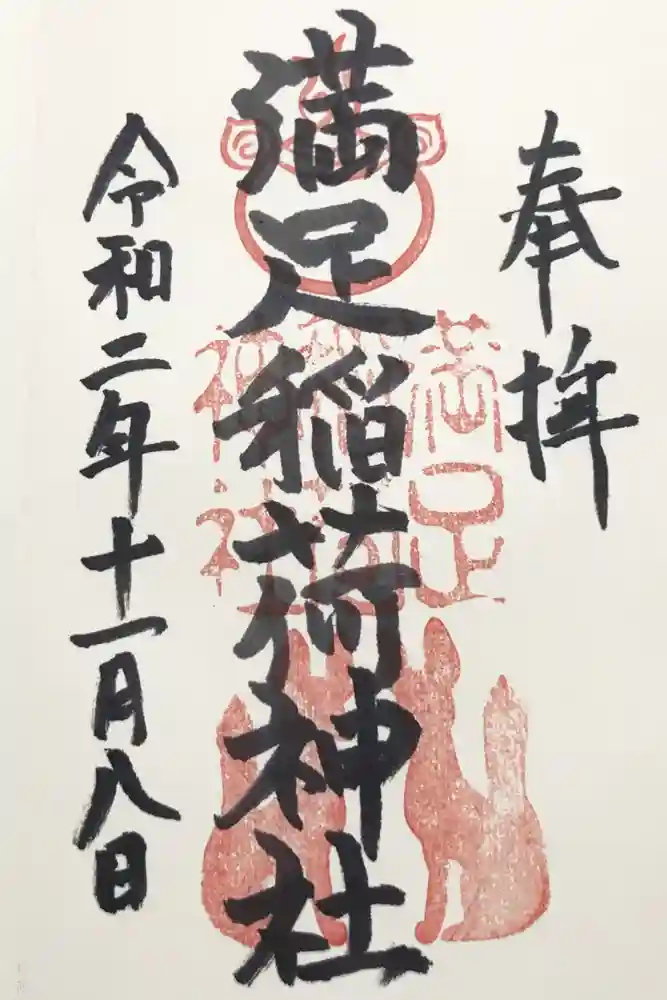 奉拝
満足稲荷神社
満足稲荷神社
令和二年十一月八日